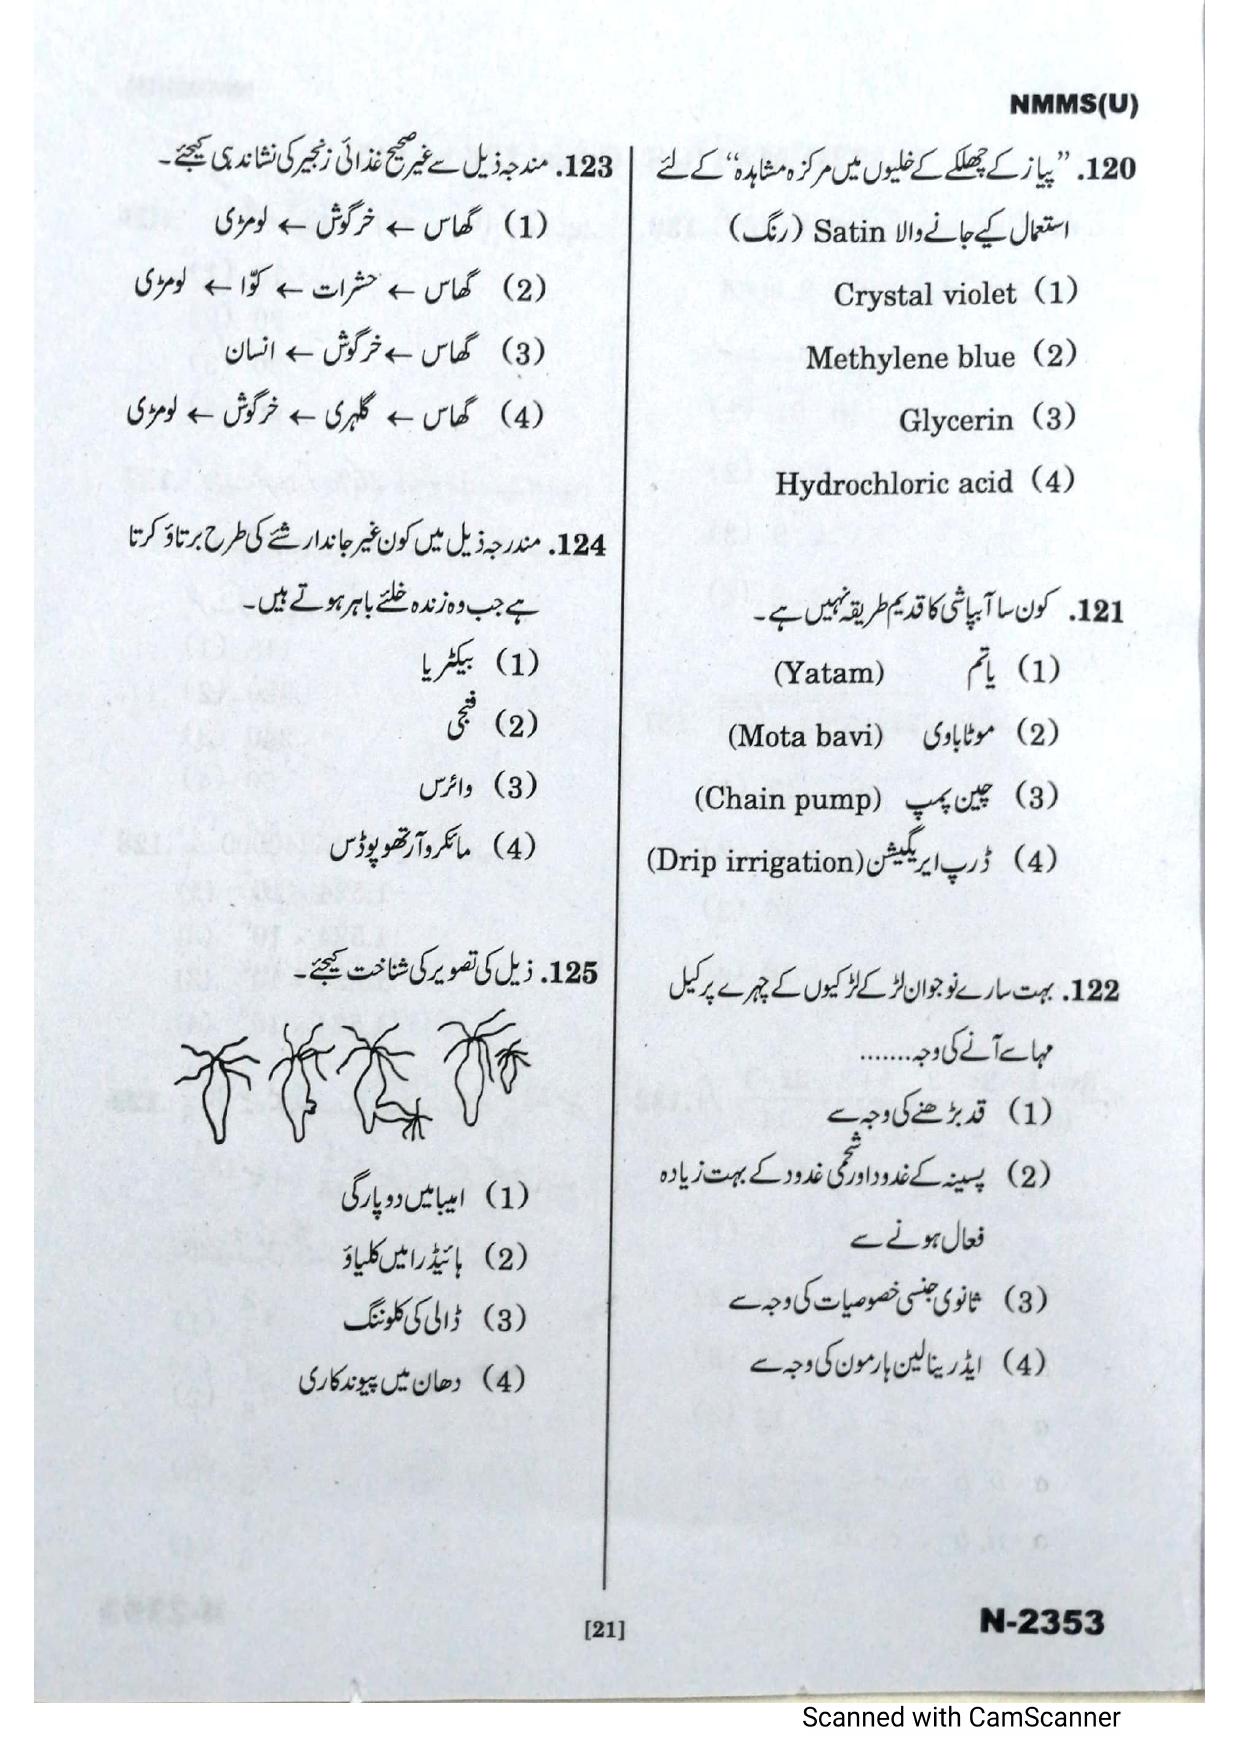 NMMS(U)
120. ”پیاز کے چھلکے کے خلیوں میں مرکزہ مشاہدہ“ کے لئے
استعمال کیے جانے والا Satin (رنگ)
(1) Crystal violet
(2) Methylene blue
(3) Glycerin
(4) Hydrochloric acid
121. کون سا آبپاشی کا قدیم طریقہ نہیں ہے۔
(1) یاتم (Yatam)
(2) موٹا باوی (Mota bavi)
(3) چین پمپ (Chain pump)
(4) ڈرپ ایریگیشن (Drip irrigation)
122. بہت سارے نوجوان لڑکے لڑکیوں کے چہرے پر کیل
مہاسے آنے کی وجہ........
(1) قد بڑھنے کی وجہ سے
(2) پسینہ کے غدود اور شحمی غدود کے بہت زیادہ
فعال ہونے سے
(3) ثانوی جنسی خصوصیات کی وجہ سے
(4) ایڈرینالین ہارمون کی وجہ سے
123. مندجہ ذیل سے غیر صحیح غذائی زنجیر کی نشاندہی کیجئے۔
(1) گھاس ← خرگوش ← لومڑی
(2) گھاس ← حشرات ← کوّا ← لومڑی
(3) گھاس ← خرگوش ← انسان
(4) گھاس ← گلہری ← خرگوش ← لومڑی
124. مندرجہ ذیل میں کون غیر جاندار شئے کی طرح برتاؤ کرتا
ہے جب وہ زندہ خلئے باہر ہوتے ہیں۔
(1) بیکٹریا
(2) فنجی
(3) وائرس
(4) مائکرو آرتھوپوڈس
125. ذیل کی تصویر کی شناخت کیجئے۔
(1) امیبا میں دو پارگی
(2) ہائیڈرا میں کلیاؤ
(3) ڈالی کی کلوننگ
(4) دھان میں پیوندکاری
[21]
N-2353
Scanned with CamScanner